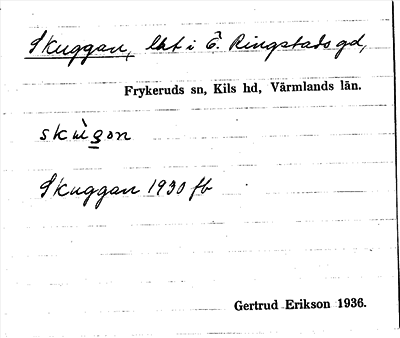 Skuggan, lht i Ö. Ringstads gd,
Frykeruds sn, Kils hd, Värmlands län.
skùgon
Skuggan 1930 fb
Gertrud Erikson 1936.